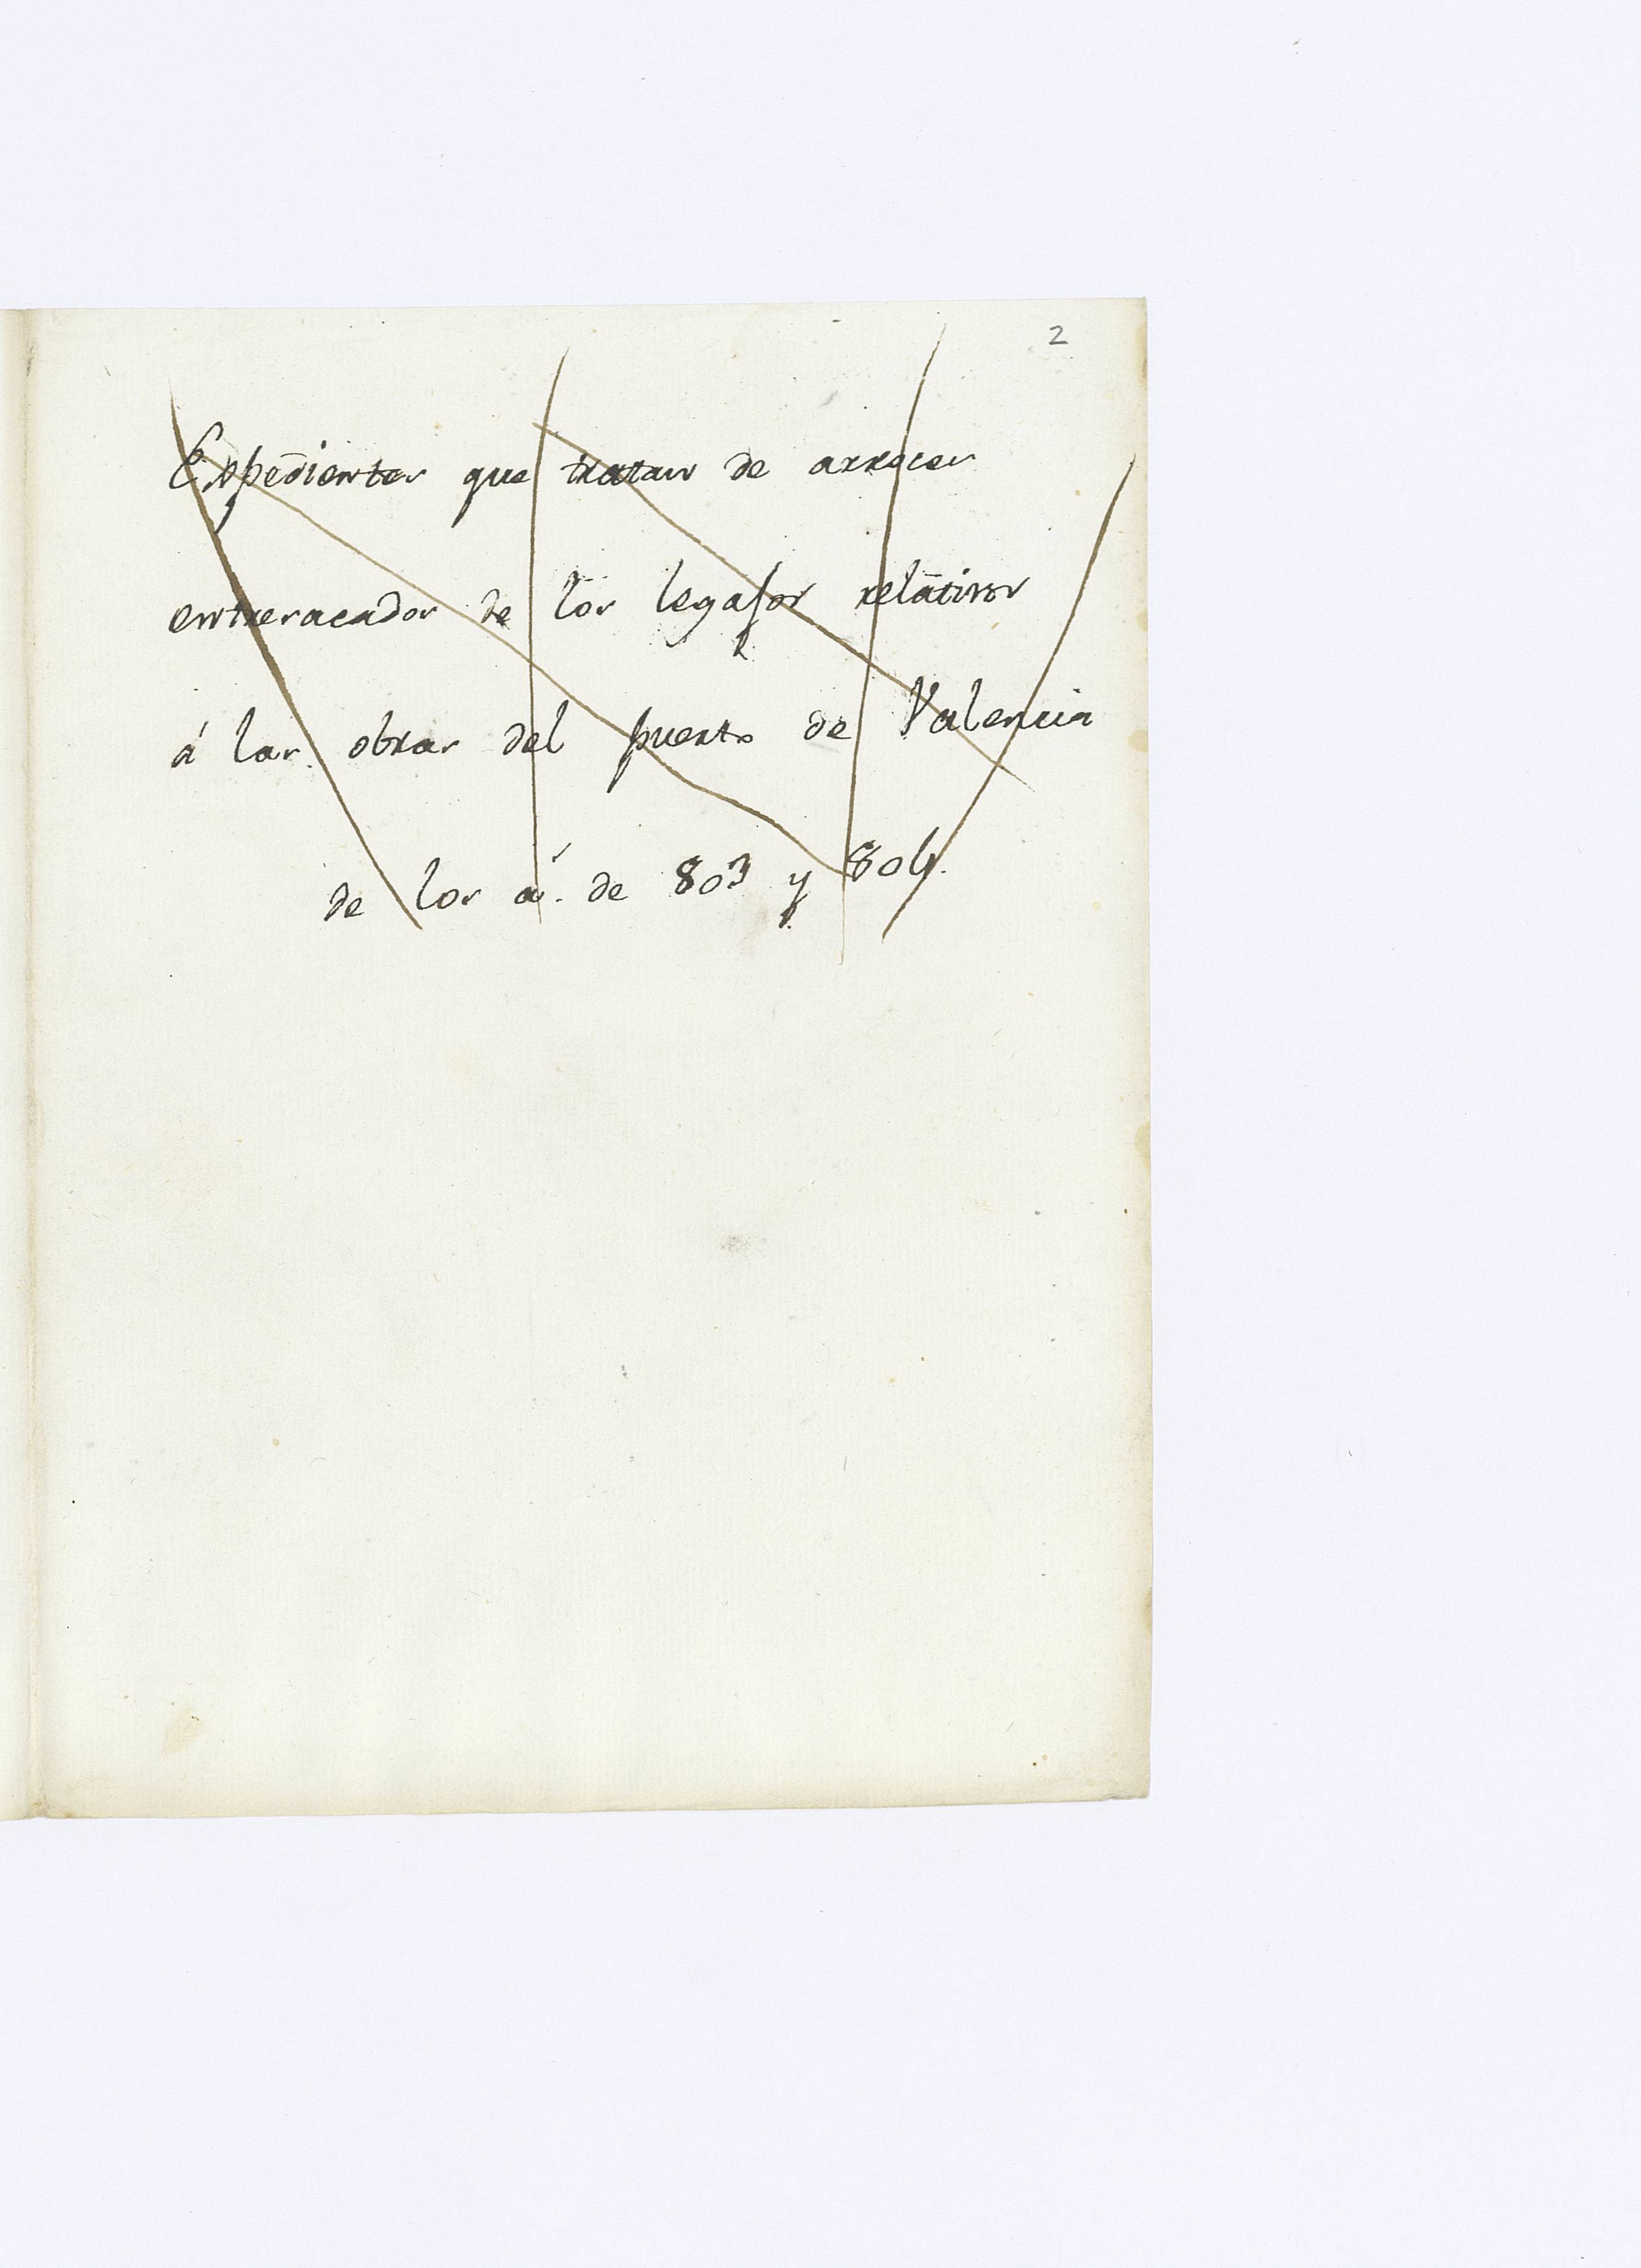 2
Expedientes que tratan de arroces
entresacados de los legajos relativos
á las obras del puerto de Valencia
de los a.s de 803 y 804.